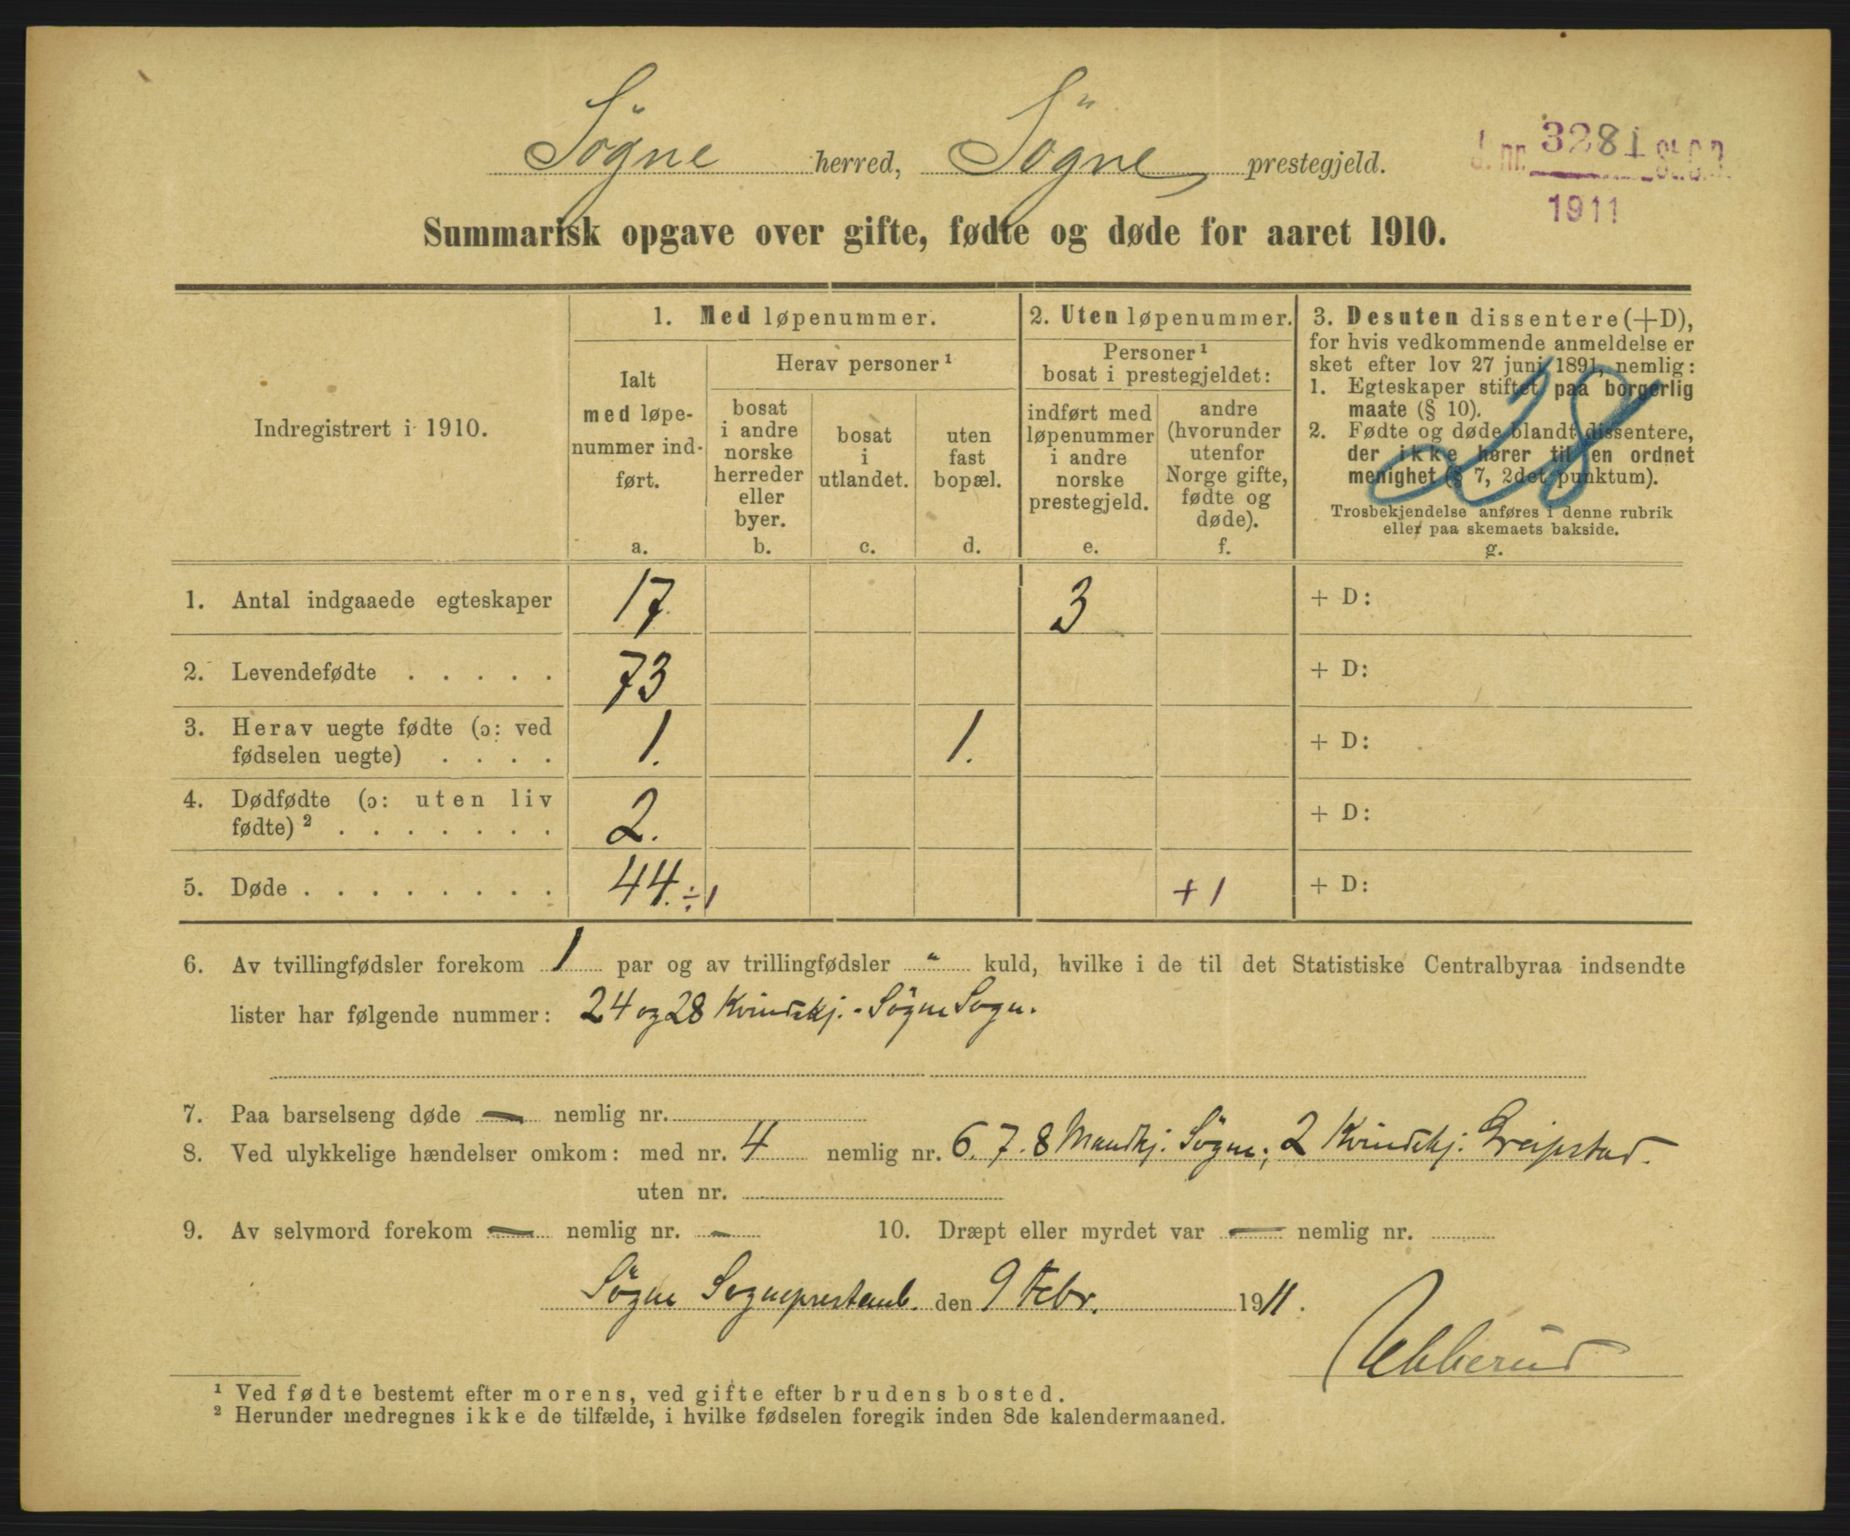 Søgne herred, Søgne prestegjeld.
J. nr. 3281 St.C.B.
1911
Summarisk opgave over gifte, fødte og døde for aaret 1910.
Indregistrert i 1910.
1. Med løpenummer.
Ialt
med løpe-
nummer ind-
ført.
a.
Herav personer ¹
bosat
i andre
norske
herreder
eller
byer.
b.
bosat
i
utlandet.
c.
uten
fast
bopæl.
d.
2. Uten løpenummer.
Personer ¹
bosat i prestegjeldet:
indført med
løpenummer
i andre
norske
prestegjeld.
e.
andre
(hvorunder
utenfor
Norge gifte,
fødte og
døde).
f.
3. Desuten dissentere (+D),
for hvis vedkommende anmeldelse er
sket efter lov 27 juni 1891, nemlig:
1. Egteskaper stiftet paa borgerlig
maate (§ 10).
2. Fødte og døde blandt dissentere,
der ikke hører til en ordnet
menighet (§ 7, 2det punktum).
Trosbekjendelse anføres i denne rubrik
eller paa skemaets bakside.
g.
28
1. Antal indgaaede egteskaper 17 3 + D:
2. Levendefødte . . . . . 73 + D:
3. Herav uegte fødte (ɔ: ved
fødselen uegte) . . . . 1. 1. + D:
4. Dødfødte (ɔ: uten liv
fødte) ² . . . . . . . 2. + D:
5. Døde . . . . . . . . 44. ÷1 +1 + D:
6. Av tvillingfødsler forekom 1 par og av trillingfødsler " kuld, hvilke i de til det Statistiske Centralbyraa indsendte
lister har følgende nummer: 24 og 28 Kvindekj. - Søgne Sogn.
7. Paa barselseng døde — nemlig nr.
8. Ved ulykkelige hændelser omkom: med nr. 4 nemlig nr. 6. 7. 8 Mandkj. Søgne; 2 Kvindekj. Greipstad.
uten nr.
9. Av selvmord forekom — nemlig nr. — 10. Dræpt eller myrdet var — nemlig nr.
Søgne Sogneprestemb. den 9 Febr. 1911.
¹ Ved fødte bestemt efter morens, ved gifte efter brudens bosted.
² Herunder medregnes ikke de tilfælde, i hvilke fødselen foregik inden 8de kalendermaaned.